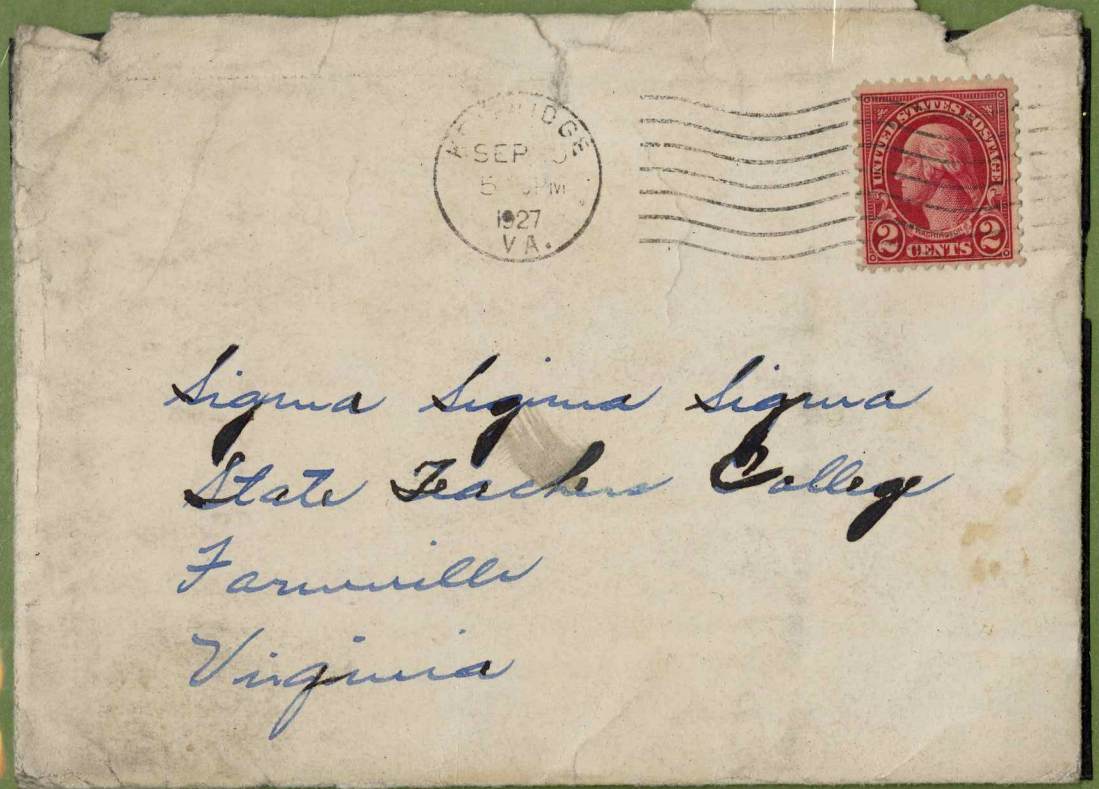 SEP
5 PM
1927
VA.
UNITED STATES POSTAGE
WASHINGTON
2 CENTS 2
Sigma Sigma Sigma
State Teachers College
Farmville
Virginia